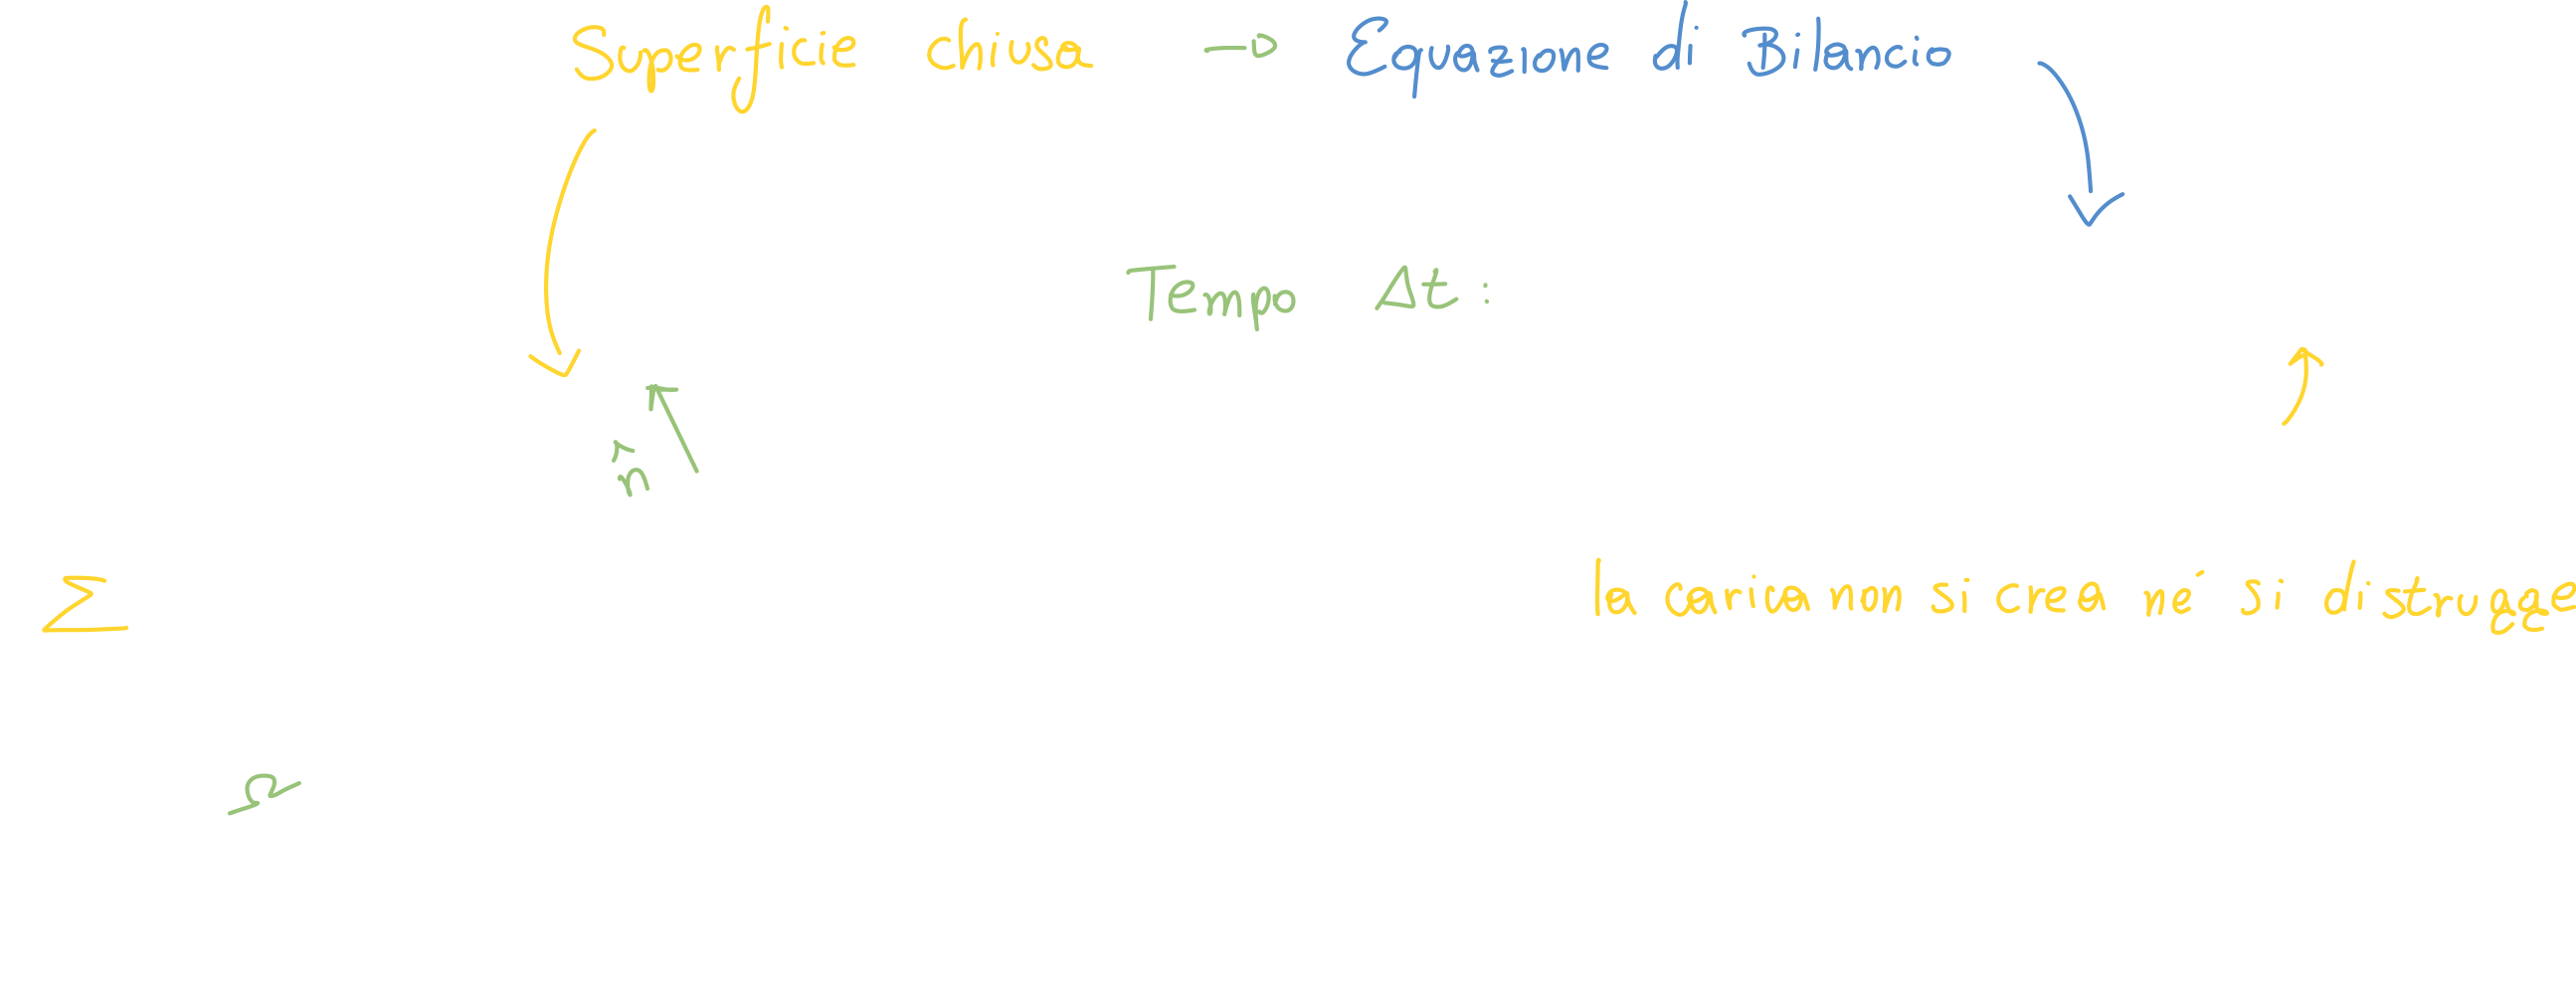 Superficie chiusa → Equazione di Bilancio
Tempo Δt :
n̂
Σ
la carica non si crea né si distrugge
Ω